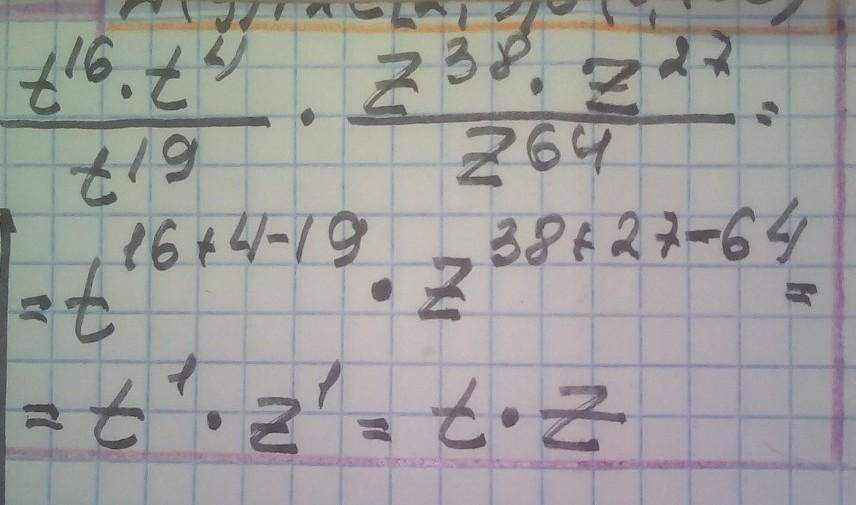 t¹⁶ · t⁴ / t¹⁹ · z³⁸ · z²⁷ / z⁶⁴ =
= t¹⁶⁺⁴⁻¹⁹ · z³⁸⁺²⁷⁻⁶⁴ =
= t¹ · z¹ = t · z